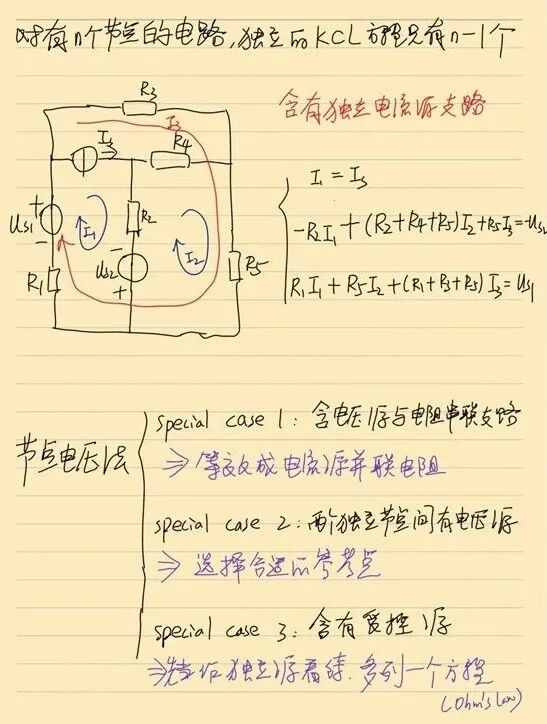 对有n个节点的电路,独立的KCL方程只有n-1个
R3
I3
含有独立电流源支路
Is
R4
I1 = Is
Us1
+
-
I1
R2
I2
-R2I1+(R2+R4+R5)I2+R5I3=-Us2
Us2
-
+
R1
R5
R1I1+R5I2+(R1+R3+R5)I3=Us1
节点电压法
special case 1: 含电压源与电阻串联支路
⇒ 等效成电流源并联电阻
special case 2: 两个独立节点间有电压源
⇒ 选择合适的参考点
special case 3: 含有受控源
⇒先当作独立源看待.多列一个方程
(Ohm's law)